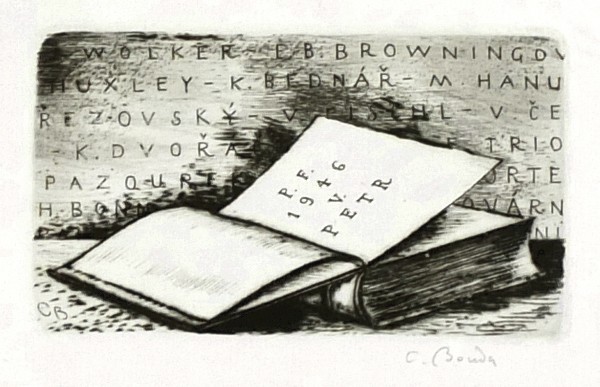 WOLKER - E.B. BROWNING
HUXLEY - K. BEDNÁŘ - M HANU
ŘEZOVSKÝ - V. FISCHL - V. ČE
- K. DVOŘA TRIO
PAZOUREK ORTE
H. BONN OVÁRN
NI
P. F.
1946
V.
PETR
CB
C. Bouda